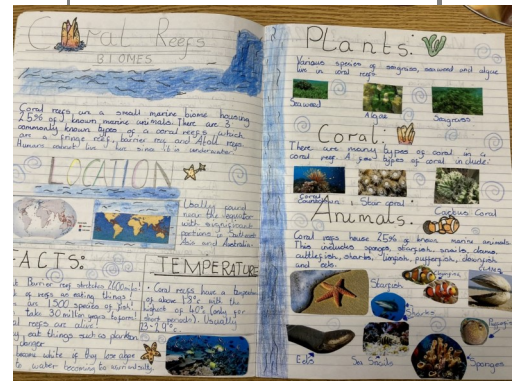 Coral Reefs
BIOMES
Coral reefs, are a small marine biome housing
25% of known marine animals. There are 3
commonly known types of a coral reefs which
are a fringe reef, barrier reef and Atoll reefs.
Humans about live here since it is underwater.
LOCATION
Usually found
near the equator
with significant
portions in Southeast
Asia and Australia.
ACTS:
Barrier reef stretches
of reefs
are 1500 species of fish!
take 30 million years to form!
reefs are alive!
eat things such as plankton
danger
become white if they lose algae
to water becoming too warm
TEMPERATURE
Coral reefs have a temperature
of above 18°c with the
highest of 40°c (only for
periods). Usually
23-29°c
Plants:
Various species of seagrass, seaweed and algae
live in coral reefs.
Seaweed
Algae
Seagrass
Coral:
There are many types of coral in a
coral reef. A few types of coral include:
Coral
Star coral
Cactus Coral
Animals
Coral reefs house 25% of known marine animals
This includes sponges, starfish, snails, clams,
cuttlefish, sharks, lionfish, pufferfish, clownfish,
and eels.
Clownfish
Clams
Starfish
Sharks
Eels
Sea Snails
Sponges